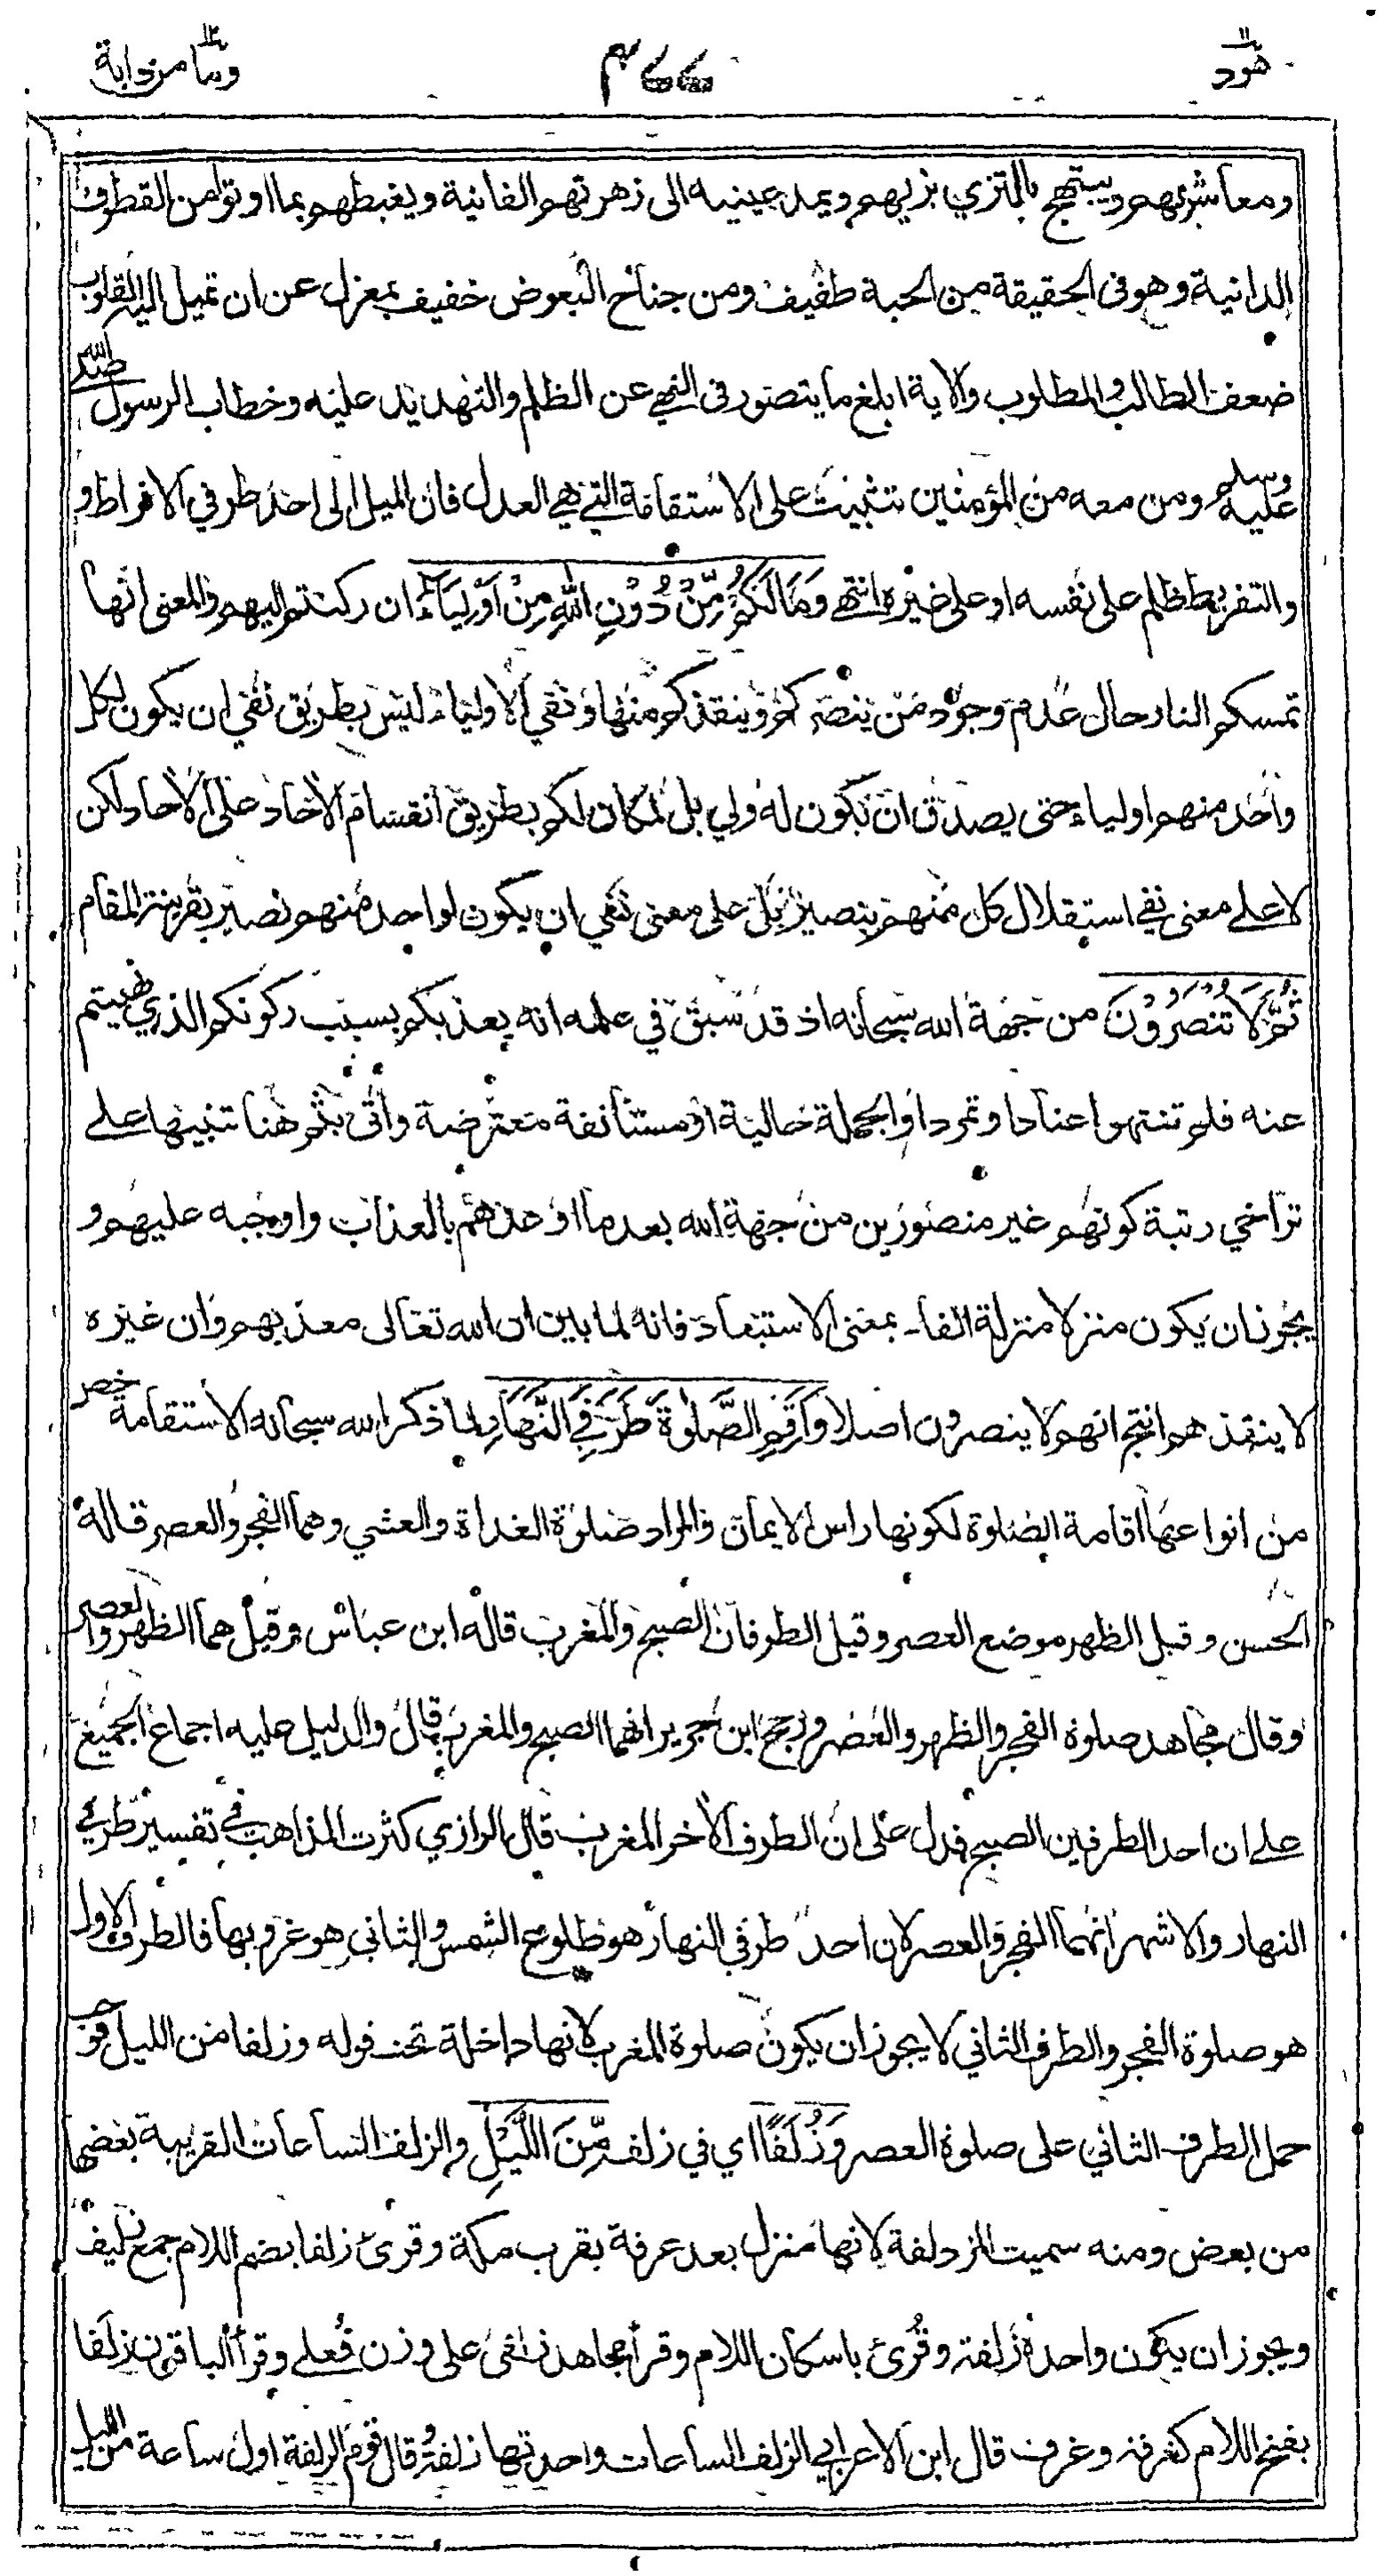 هود ٤٧٧ وما من دابة
ومعاشرتهم ويبتهج بالتزي بزيهم ويمد عينيه الى زهرتهم الفانية ويغبطهم بما اوتوا من القطوف
الدانية وهو في الحقيقة من الحبة طفيف ومن جناح البعوض خفيف بمعزل عن ان تميل اليه القلوب
ضعف الطالب والمطلوب والاية ابلغ ما يتصور في النهي عن الظلم والتهديد عليه وخطاب الرسول صلى الله
عليه وسلم ومن معه من المؤمنين تثبيت على الاستقامة التي هي العدل فان الميل الى احد طرفي الافراط و
والتفريط ظلم على نفسه او على غيره انتهى وَمَا لَكُمْ مِّنْ دُوْنِ اللّٰهِ مِنْ اَوْلِيَاءَ ان ركنتم اليهم والمعنى انها
تمسكم النار حال عدم وجود من ينصركم وينقذكم منها ونفي الاولياء ليس بطريق نفي ان يكون لكل
واحد منهم اولياء حتى يصدق ان يكون له ولي بل لمكان لكم بطريق انقسام الاحاد على الاحاد لكن
لا على معنى نفي استقلال كل منهم بنصير بل على معنى نفي ان يكون لواحد منهم نصير بقرينة المقام
ثُمَّ لَا تُنْصَرُوْنَ من جهة الله سبحانه اذ قد سبق في علمه انه يعذبكم بسبب ركونكم الذي نهيتم
عنه فلم تنتهوا عنادا وتمردا والجملة حالية او مستأنفة معترضة وأتى بثم هنا تنبيها على
تراخي رتبة كونهم غير منصورين من جهة الله بعد ما اوعدهم بالعذاب واوجبه عليهم و
يجوز ان يكون منزلا منزلة الفاء بمعنى الاستبعاد فانه لما بين ان الله تعالى معذبهم وان غيره
لا ينقذهم انتج انهم لا ينصرون اصلا وَاَقِمِ الصَّلٰوةَ طَرَفَيِ النَّهَارِ لما ذكر الله سبحانه الاستقامة خص
من انواعها اقامة الصلوة لكونها راس الايمان والمراد صلوة الغداة والعشي وهما الفجر والعصر قاله
الحسن وقيل الظهر موضع العصر وقيل الطرفان الصبح والمغرب قاله ابن عباس وقيل هما الظهر والعصر
وقال مجاهد صلوة الفجر والظهر والعصر ورجح ابن جرير انهما الصبح والمغرب قال والدليل عليه اجماع الجميع
على ان احد الطرفين الصبح فدل على ان الطرف الاخر المغرب قال الرازي كثرت المذاهب في تفسير طرفي
النهار والاشهر انهما الفجر والعصر لان احد طرفي النهار هو طلوع الشمس والثاني هو غروبها فالطرف الاول
هو صلوة الفجر والطرف الثاني لا يجوز ان يكون صلوة المغرب لانها داخلة تحت قوله وزلفا من الليل فوجب
حمل الطرف الثاني على صلوة العصر وَزُلَفًا اي في زلف مِّنَ اللَّيْلِ والزلف الساعات القريبة بعضها
من بعض ومنه سميت المزدلفة لانها منزل بعد عرفة بقرب مكة وقرئ زلفا بضم اللام جمع زليف
ويجوز ان يكون واحده زلفة وقرئ باسكان اللام وقرأ مجاهد زلفى على وزن فعلى وقرأ الباقون زلفا
بفتح اللام كغرفة وغرف قال ابن الاعرابي الزلف الساعات واحدتها زلفة وقال قوم الزلفة اول ساعة من الليل